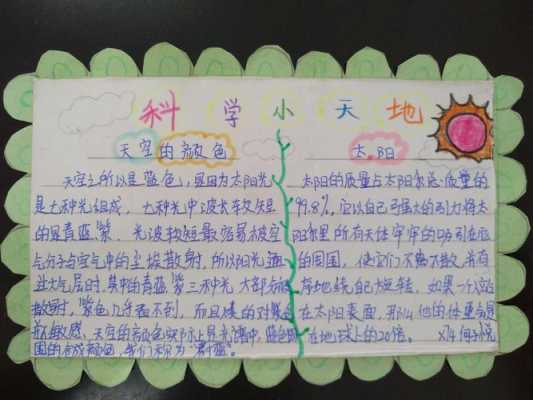 科学小天地
天空的颜色
天空之所以是蓝色，是因为太阳光
是七种光组成，七种光中波长较短
的是青蓝紫，光波较短最容易被空
气分子与空气中的尘埃散射，所以阳光通
过大气层时，其中的青蓝紫三种光大部分被
散射，紫色几乎看不到，而且
敏感，天空的颜色实际上是光谱中蓝色
的合成颜色，我们称为"蔚蓝"。
太阳
太阳的质量占太阳系总质量的
99.8%，它以自己强大的引力将太
阳系里所有天体牢牢的吸引在
的周围，使它们不离不散，井有
地绕自己旋转，如果一个人站
在太阳表面，那么他的体重会是
在地球上的20倍。